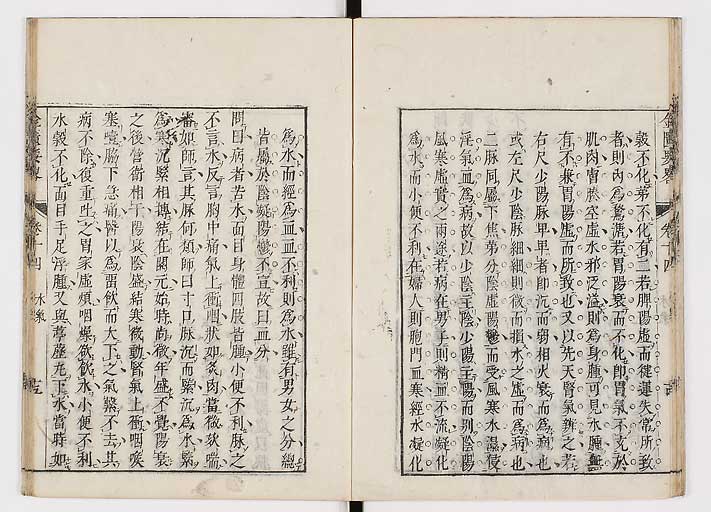 穀不化第不化有二若脾陽虛而健運失常所致
者則内為鶩溏若胃陽衰而不化即胃氣不充於
肌肉膚腠空虛水邪泛溢則為身腫可見水腫無
有不兼胃陽虛而所致也又以先天腎氣辨之若
右尺少陽脉卑卑者即沉而弱相火衰而為病也
或左尺少陰脉細細則微而損水之虛而為病也
二脉同屬下焦第分陰虛陽鬱而受風寒水濕侵
淫氣血為病故以少陰主陰少陽主陽而别陰陽
風寒虛實之兩途若病在男子則精血不流凝化
為水而小便不利在婦人則胞門血寒經水凝化
金匱要畧 卷十四 水氣
為水而經為血血不利則為水雖有男女之分總
皆屬於陰凝陽鬱不宣故曰血分
問曰病者苦水面目身體四肢皆腫小便不利脉之
不言水反言胸中痛氣上衝咽狀如炙肉當微欬喘
審如師言其脉何類師曰寸口脉沉而緊沉為水緊
為寒沉緊相搏結在關元始時尚微年盛不覺陽衰
之後營衛相干陽衰陰盛結寒微動腎氣上衝咽喉
塞噎脇下急痛醫以為留飲而大下之氣繫不去其
病不除後重吐之胃家虛煩咽燥欲飲水小便不利
水穀不化面目手足浮腫又與葶藶丸下水當時如
金匱要畧 卷十四 水氣